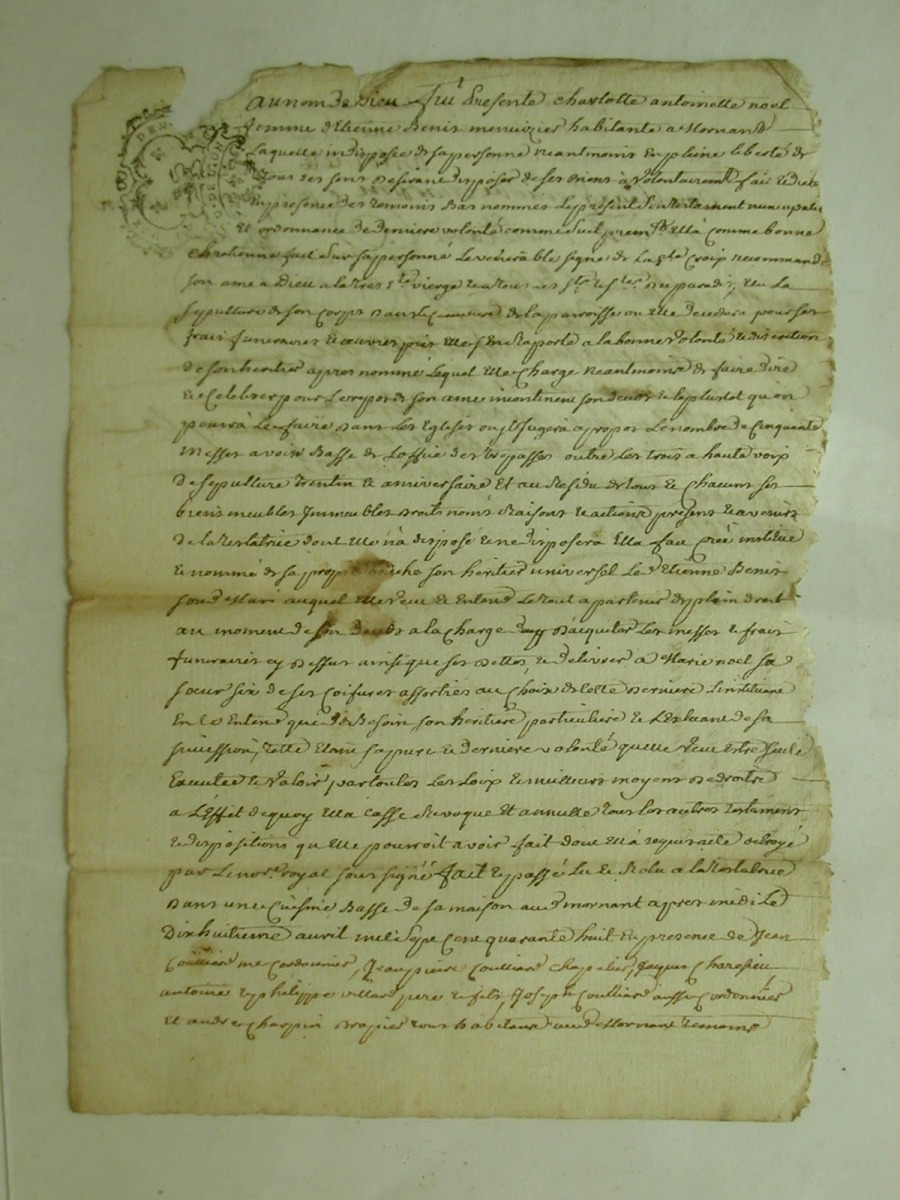 au nom de Dieu fut presente charlotte antoinette noel
femme d'Etienne Benis menuizier habitante a Mornand
Laquelle indisposée de sa personne neantmoins en pleine liberté de
tous ses sens desirant disposer de ses biens a volontairemt fait et dicté
en presence des temoins bas nommés le present son testament nuncupatif
Et ordonnance de derniere volonté comme suit premt Ella comme bonne
chretienne fait sur sa personne le venerable signe de la ste Croix recommandé
son ame a Dieu a la tres ste vierge et a tous les sts et stes du paradis, elu la
sepulture de son corps dans le cimetiere de la parroisse ou elle decedera pour ses
frais funeraires et oeuvres pies elle s'en raporte a la bonne volonté et discretion
de son heritier apres nommé lequel elle charge neantmoins de faire dire
et celebrer pour le repos de son ame incontinent son deceds et le plustot qu'on
pourra le faire dans les Eglises ou jl jugera a propos le nombre de cinquante
messes a voix basse de l'office des trepassés outre les trois a haute voix
de sepulture trentin et anniversaire Et au residu de tous et chacuns ses
biens meubles jmmeubles droits noms raisons et actions presens et avenirs
de la testatrice dont elle n'a disposé et ne disposera Ella fait créé institué
et nommé de sa propre bouche son heritier universel led Etienne Benis
sond Mari auquel elle veut et entend le tout apartenir de plein droit
au moment de son deceds a la charge d'acquiter les messes et frais
funeraires cy dessus ainsi que ses dettes, et delivrer a Marie noel sa
soeur six de ses coifures assorties au choix de cette derniere l'instituant
En ce Entend que de Besoin son heritiere particuliere et l'Excluant de sa
succession, cette Etant sa pure et derniere volonté quelle veut estre seule
Executée et valoir par toutes les loix et meilleurs moyens de droits
a l'Effet de quoy Ella cassé revoqué Et annullé tous les autres testaments
et dispositions qu'elle pourroit avoir fait dont ella requis acte octroyé
par le nore royal soussigné fait et passé lu et relu a la testatrice
dans une cuisine basse de sa maison aud mornant apres midi le
Dix huitieme avril mil sept cent quarante huit en presence de Jean
Coulliard me cordonnier, Jean pierre Coulliard chapelier, Jacques
antoine et philippe villard pere et fils, Joseph Coulliard aussi cordonnier
Et andré Charpin drapier tous habitans aud Mornant temoins